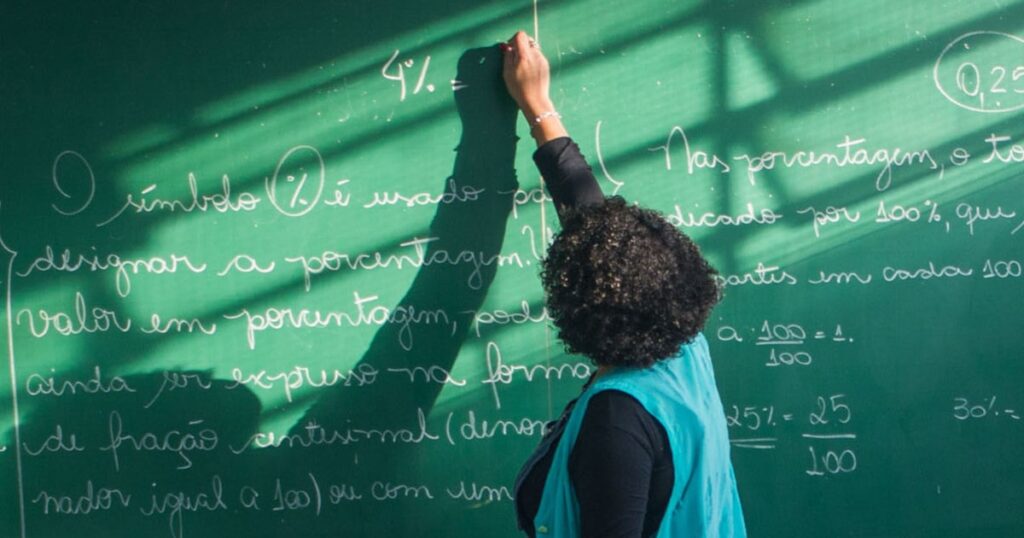 4% =
O símbolo % é usado pa
designar a porcentagem.
valor em porcentagem, pode
ainda ser expresso na forma
de fração centesimal (denomi
nador igual a 100) ou com um
0,25
Nas porcentagem, o to
dicado por 100%, que
partes em cada 100
a 100/100 = 1.
25% = 25/100
30% =